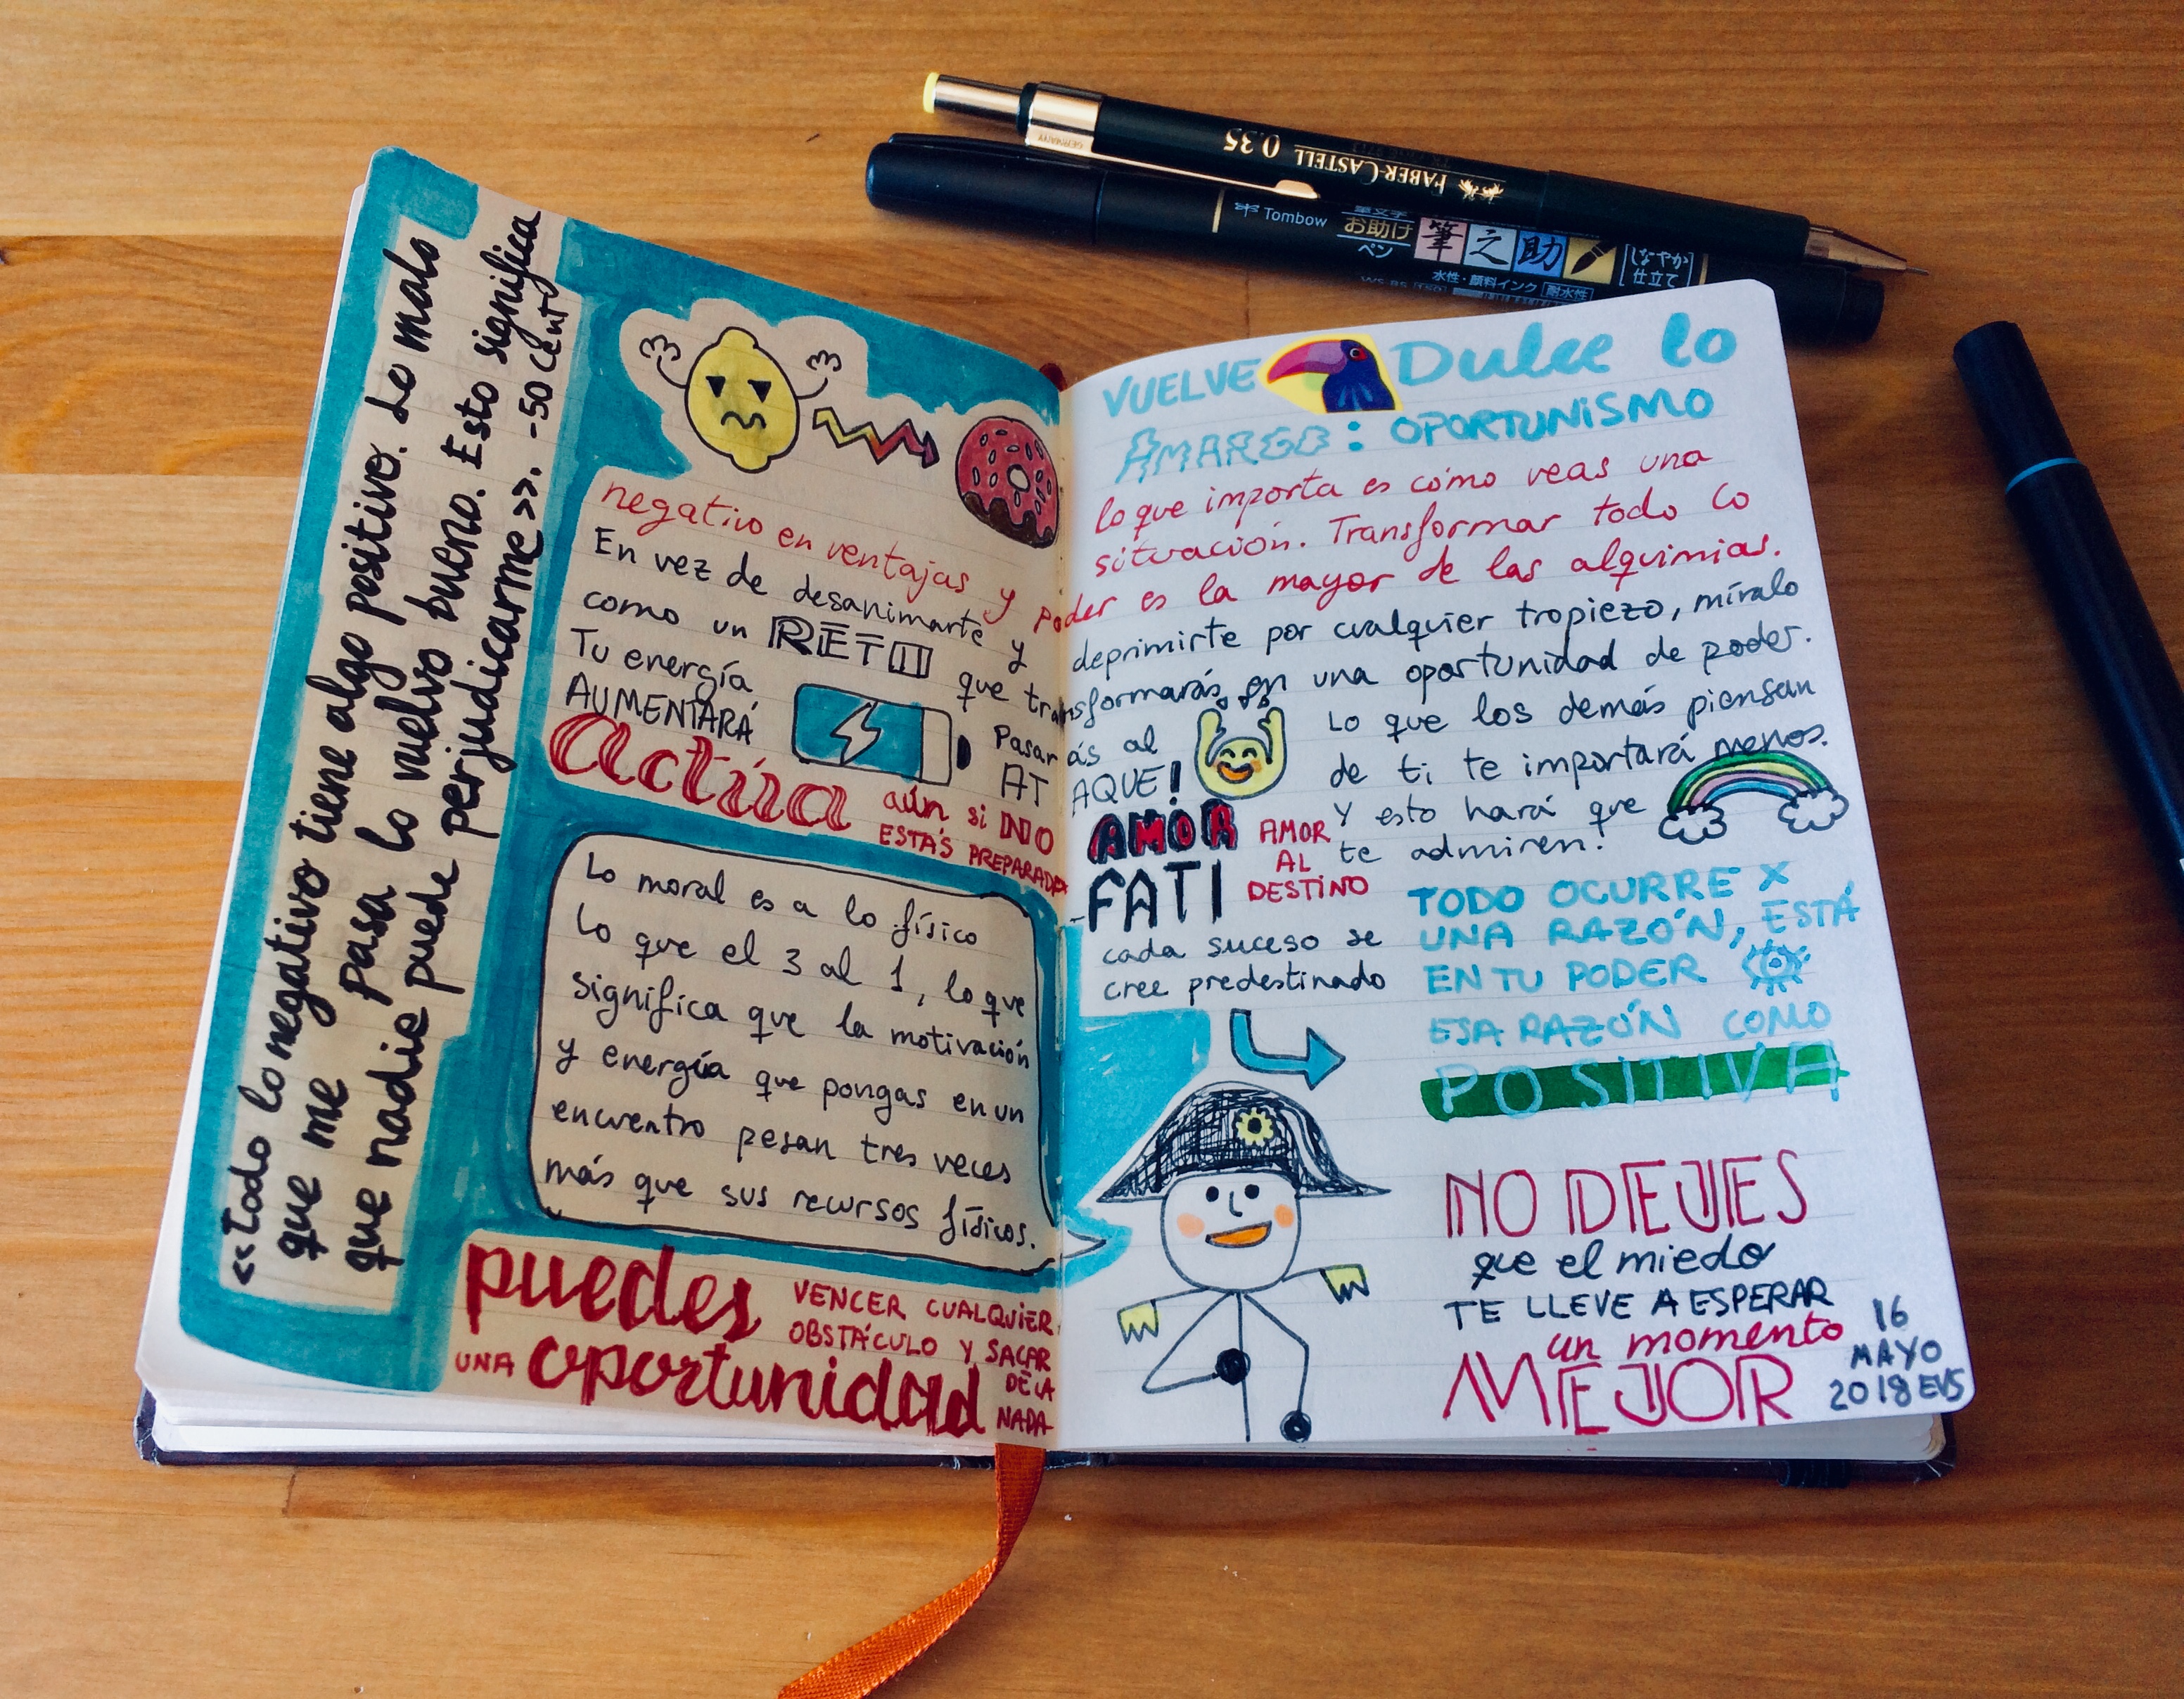 «Todo lo negativo tiene algo positivo. Lo malo
que me pasa lo vuelvo bueno. Esto significa
que nadie puede perjudicarme». -50 CENT
VUELVE Dulce lo
AMARGO: OPORTUNISMO
lo que importa es cómo veas una
situación. Transformar todo lo
negativo en ventajas y poder es la mayor de las alquimias.
En vez de desanimarte y deprimirte por cualquier tropiezo, míralo
como un RETO que transformarás en una oportunidad de poder.
Tu energía
AUMENTARÁ
Pasarás al
ATAQUE!
Lo que los demás piensan
de ti te importará menos.
Y esto hará que
te admiren!
Actúa aún si NO
ESTÁS PREPARADX
AMOR
FATI
AMOR
AL
DESTINO
cada suceso se
cree predestinado
TODO OCURRE X
UNA RAZÓN, ESTÁ
EN TU PODER
ESA RAZÓN COMO
POSITIVA
Lo moral es a lo físico
lo que el 3 al 1, lo que
significa que la motivación
y energía que pongas en un
encuentro pesan tres veces
más que sus recursos físicos.
puedes VENCER CUALQUIER
OBSTÁCULO Y SACAR
UNA oportunidad DE LA
NADA
NO DEJES
que el miedo
TE LLEVE A ESPERAR
un momento
MEJOR
16
MAYO
2018 EVS
FABER-CASTELL 0.35
GERMANY
Tombow
筆文字
お助け
ペン
筆之助
しなやか
仕立て
水性・顔料インク 耐水性